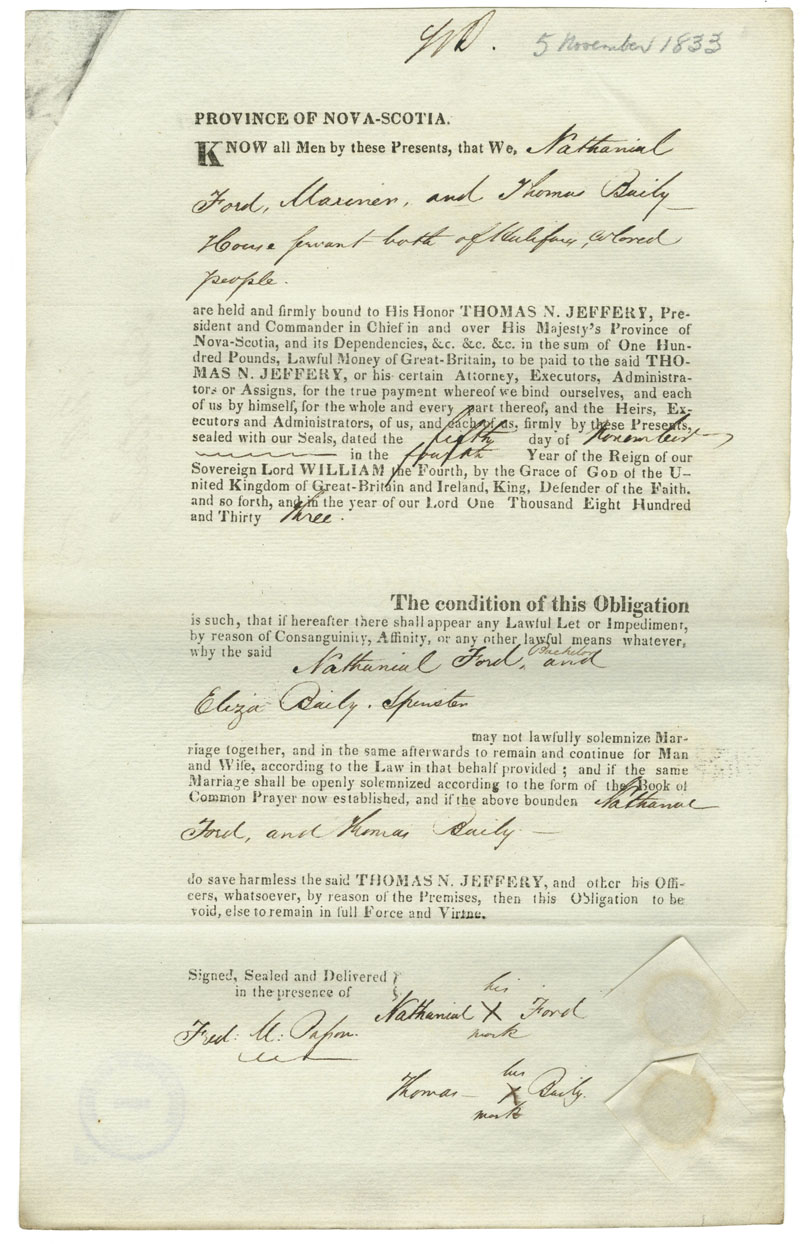 5 November 1833
PROVINCE OF NOVA-SCOTIA.
KNOW all Men by these Presents, that We, Nathanial
Ford, Mariner, and Thomas Baily
House servant both of Halifax, Colored
people.
are held and firmly bound to His Honor THOMAS N. JEFFERY, Pre-
sident and Commander in Chief in and over His Majesty's Province of
Nova-Scotia, and its Dependencies, &c. &c. &c. in the sum of One Hun-
dred Pounds, Lawful Money of Great-Britain, to be paid to the said THO-
MAS N. JEFFERY, or his certain Attorney, Executors, Administra-
tors or Assigns, for the true payment whereof we bind ourselves, and each
of us by himself, for the whole and every part thereof, and the Heirs, Ex-
ecutors and Administrators, of us, and each of us, firmly by these Presents,
sealed with our Seals, dated the fifth day of November
in the fourth Year of the Reign of our
Sovereign Lord WILLIAM the Fourth, by the Grace of GOD of the U-
nited Kingdom of Great-Britain and Ireland, King, Defender of the Faith,
and so forth, and in the year of our Lord One Thousand Eight Hundred
and Thirty three.
The condition of this Obligation
is such, that if hereafter there shall appear any Lawful Let or Impediment,
by reason of Consanguinity, Affinity, or any other lawful means whatever,
why the said Nathanial Ford, Bachelor and
Eliza Baily. Spinster
may not lawfully solemnize Mar-
riage together, and in the same afterwards to remain and continue for Man
and Wife, according to the Law in that behalf provided ; and if the same
Marriage shall be openly solemnized according to the form of the Book of
Common Prayer now established, and if the above bounden Nathanial
Ford, and Thomas Baily
do save harmless the said THOMAS N. JEFFERY, and other his Offi-
cers, whatsoever, by reason of the Premises, then this Obligation to be
void, else to remain in full Force and Virtue.
Signed, Sealed and Delivered
in the presence of
Fred: M:
his
Nathanial X Ford
mark
his
Thomas X Baily.
mark